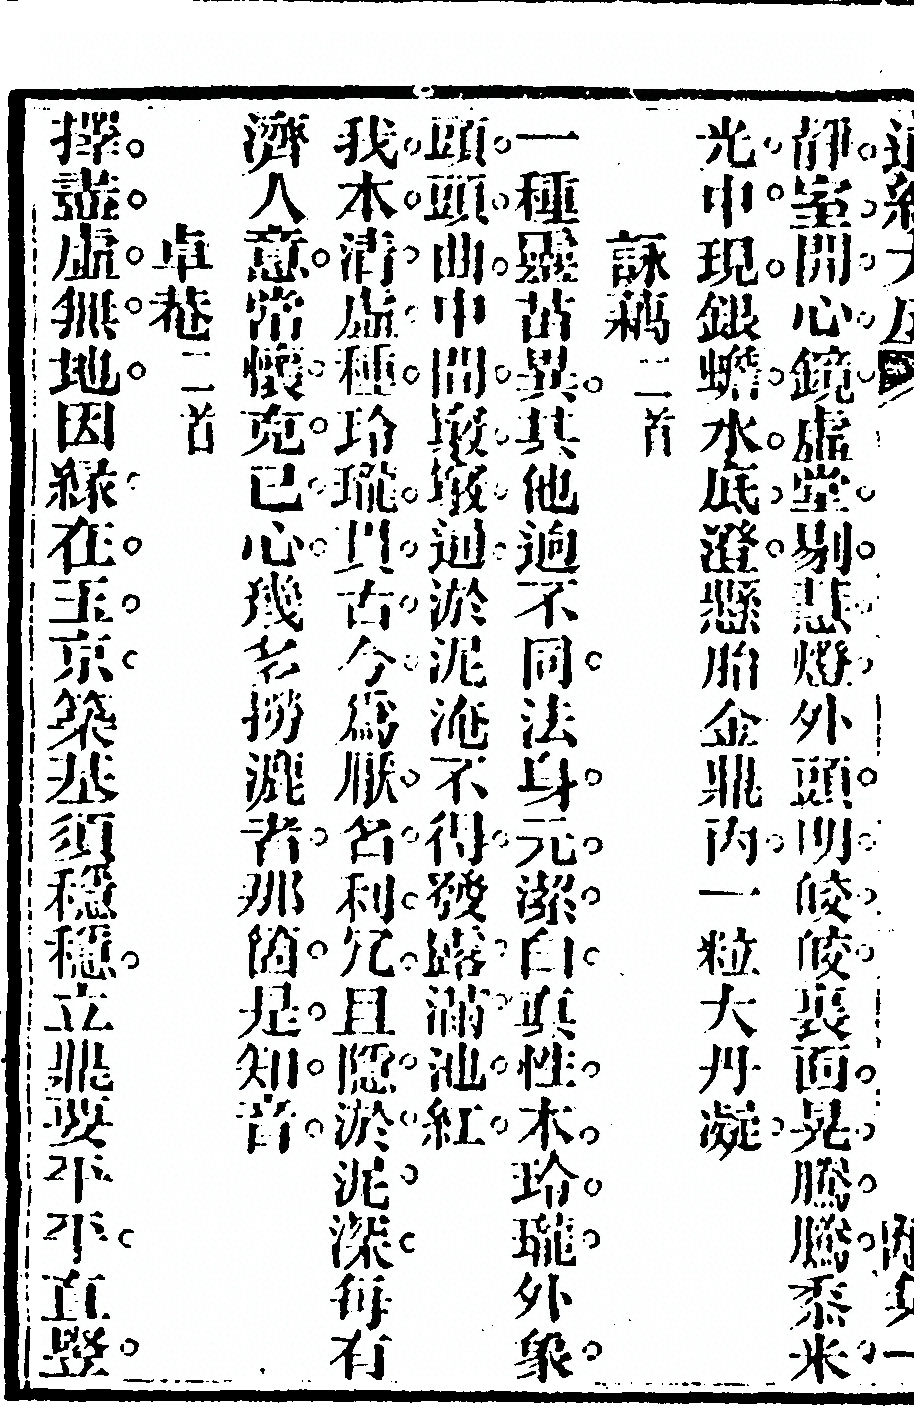 靜室開心鏡虛堂剔慧燈外頭明皎皎裏面晃騰騰黍米
光中現銀蟾水底澄懸胎金鼎內一粒大丹凝
詠藕二首
一種靈苗異其他逈不同法身元潔白真性本玲瓏外象
頭頭曲中間竅竅通淤泥淹不得發露滿池紅
我本清虛種玲瓏貫古今爲厭名利冗且隱淤泥深每有
濟人意常懷克己心幾多撈漉者那箇是知音
卓菴二首
擇盡虛無地因緣在玉京築基須穩穩立鼎要平平直豎